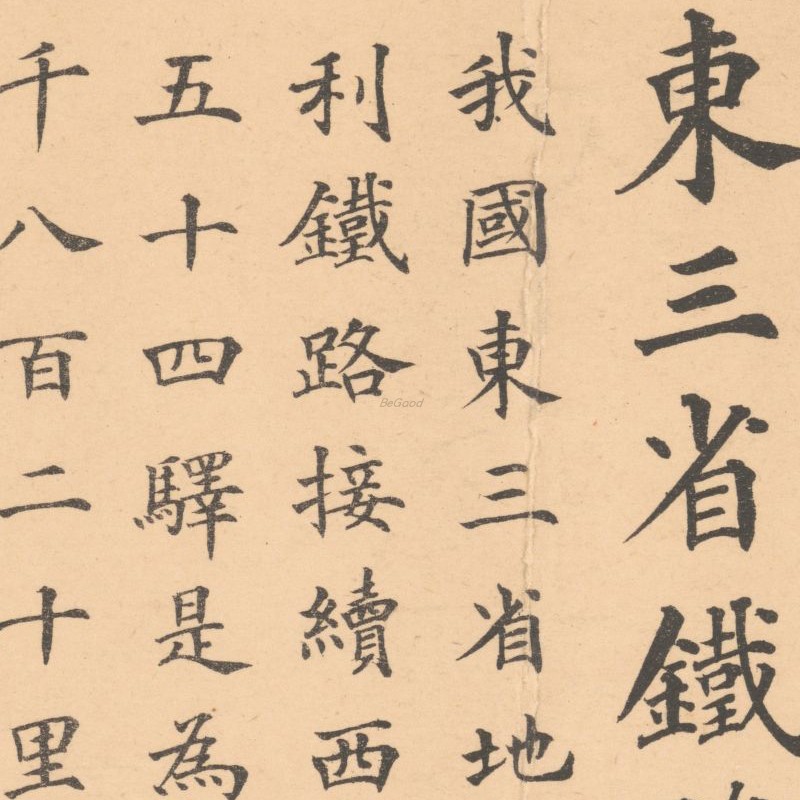 東三省鐵
我國東三省地
利鐵路接續西
五十四驛是為
千八百二十里
BeGood